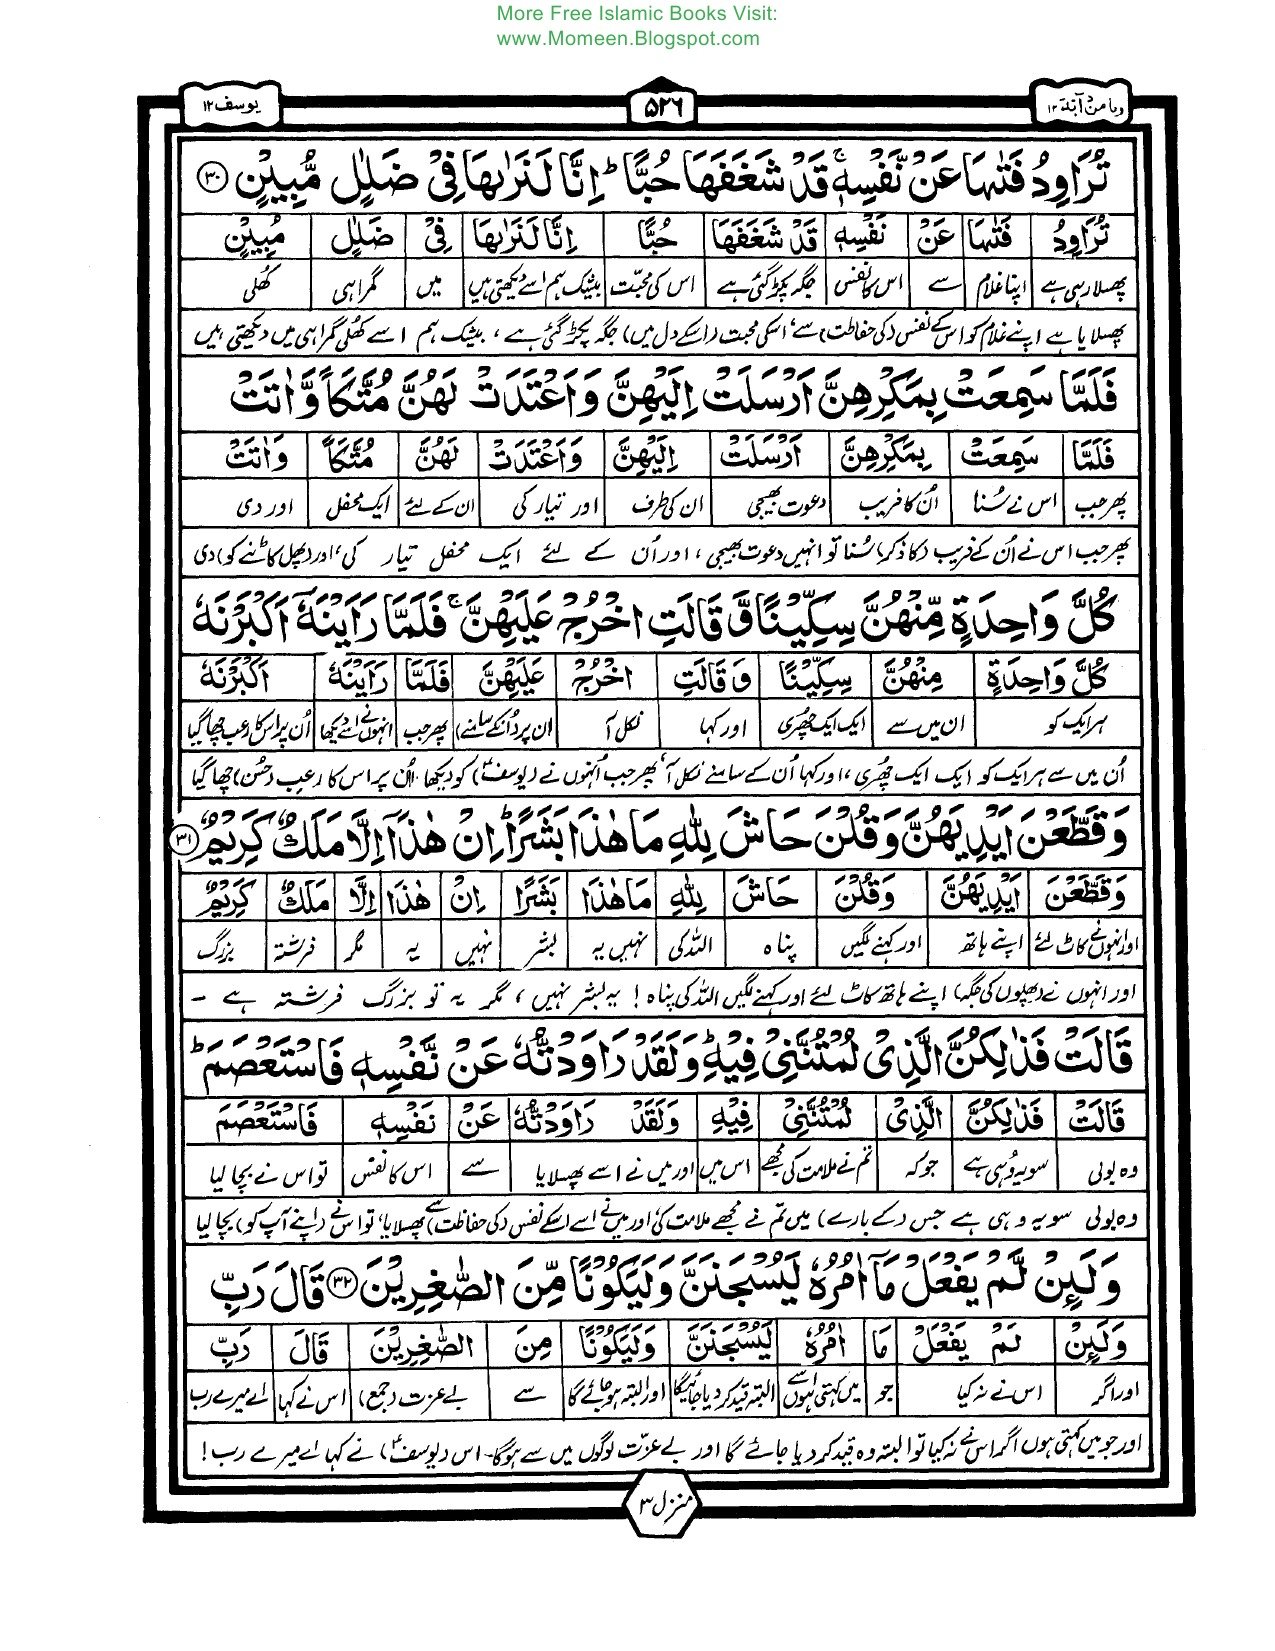 More Free Islamic Books Visit:
www.Momeen.Blogspot.com
وما من دآبة ۱۲
۵۲۶
یوسف ۱۲
تُرَاوِدُ فَتٰىهَا عَنْ نَّفْسِهٖ ۚ قَدْ شَغَفَهَا حُبًّا ؕ اِنَّا لَنَرٰىهَا فِیْ ضَلٰلٍ مُّبِیْنٍ ۳۰
تُرَاوِدُ فَتٰىهَا عَنْ نَفْسِهٖ قَدْ شَغَفَهَا حُبًّا اِنَّا لَنَرٰىهَا فِیْ ضَلٰلٍ مُبِیْنٍ
پھسلا رہی ہے اپنا غلام سے اس کا نفس جگہ پکڑ گئی ہے اس کی محبت بیشک ہم اسے دیکھتی ہیں میں گمراہی کھلی
پھسلایا ہے اپنے غلام کو اس کے نفس (کی حفاظت) سے، اسکی محبت (اسکے دل میں) جگہ پکڑ گئی ہے، بیشک ہم اسے کھلی گمراہی میں دیکھتی ہیں
فَلَمَّا سَمِعَتْ بِمَكْرِهِنَّ اَرْسَلَتْ اِلَیْهِنَّ وَاَعْتَدَتْ لَهُنَّ مُتَّكَاً وَّاٰتَتْ
فَلَمَّا سَمِعَتْ بِمَكْرِهِنَّ اَرْسَلَتْ اِلَیْهِنَّ وَاَعْتَدَتْ لَهُنَّ مُتَّكَاً وَاٰتَتْ
پھر جب اس نے سُنا اُن کا فریب دعوت بھیجی ان کی طرف اور تیار کی ان کے لئے ایک محفل اور دی
پھر جب اس نے اُن کے فریب (کا ذکر) سُنا تو انہیں دعوت بھیجی، اور اُن کے لئے ایک محفل تیار کی، اور (پھل کاٹنے کو) دی
كُلَّ وَاحِدَةٍ مِّنْهُنَّ سِكِّیْنًا وَّقَالَتِ اخْرُجْ عَلَیْهِنَّ ۚ فَلَمَّا رَاَیْنَهٗۤ اَكْبَرْنَهٗ
كُلَّ وَاحِدَةٍ مِنْهُنَّ سِكِّیْنًا وَقَالَتِ اخْرُجْ عَلَیْهِنَّ فَلَمَّا رَاَیْنَهٗ اَكْبَرْنَهٗ
ہر ایک کو ان میں سے ایک ایک چھُری اور کہا نکل آ ان پر (انکے سامنے) پھر جب انہوں نے اسے دیکھا اُن پر اس کا رعب چھا گیا
اُن میں سے ہر ایک کو ایک ایک چھُری، اور کہا اُن کے سامنے نکل آ، پھر جب اُنہوں نے (یوسفؑ) کو دیکھا اُن پر اس کا رعبِ (حسن) چھا گیا
وَقَطَّعْنَ اَیْدِیَهُنَّ وَقُلْنَ حَاشَ لِلّٰهِ مَا هٰذَا بَشَرًا ؕ اِنْ هٰذَاۤ اِلَّا مَلَكٌ كَرِیْمٌ ۳۱
وَقَطَّعْنَ اَیْدِیَهُنَّ وَقُلْنَ حَاشَ لِلّٰهِ مَا هٰذَا بَشَرًا اِنْ هٰذَا اِلَّا مَلَكٌ كَرِیْمٌ
اور انہوں نے کاٹ لئے اپنے ہاتھ اور کہنے لگیں پناہ اللہ کی نہیں یہ بشر نہیں یہ مگر فرشتہ بزرگ
اور انہوں نے (پھلوں کی جگہ) اپنے ہاتھ کاٹ لئے اور کہنے لگیں اللہ کی پناہ! یہ بشر نہیں، مگر یہ تو بزرگ فرشتہ ہے ۔
قَالَتْ فَذٰلِكُنَّ الَّذِیْ لُمْتُنَّنِیْ فِیْهِ ؕ وَلَقَدْ رَاوَدْتُّهٗ عَنْ نَّفْسِهٖ فَاسْتَعْصَمَ ؕ
قَالَتْ فَذٰلِكُنَّ الَّذِیْ لُمْتُنَّنِیْ فِیْهِ وَلَقَدْ رَاوَدْتُّهٗ عَنْ نَفْسِهٖ فَاسْتَعْصَمَ
وہ بولی سو یہ وُہی ہے جو کہ تم نے ملامت کی مجھے اس میں اور میں نے اسے پھسلایا سے اس کا نفس تو اس نے بچا لیا
وہ بولی سو یہ وہی ہے جس (کے بارے) میں تم نے مجھے ملامت کی، اور میں نے اسے اسکے نفس (کی حفاظت) سے پھسلایا، تو اس نے (اپنے آپ کو) بچا لیا
وَلَىِٕنْ لَّمْ یَفْعَلْ مَاۤ اٰمُرُهٗ لَیُسْجَنَنَّ وَلَیَكُوْنًا مِّنَ الصّٰغِرِیْنَ ۳۲ قَالَ رَبِّ
وَلَىِٕنْ لَمْ یَفْعَلْ مَا اٰمُرُهٗ لَیُسْجَنَنَّ وَلَیَكُوْنًا مِنَ الصّٰغِرِیْنَ قَالَ رَبِّ
اور اگر اس نے نہ کیا جو میں کہتی ہوں اسے البتہ قید کر دیا جائیگا اور البتہ ہو جائے گا سے بے عزت (جمع) اس نے کہا اے میرے رب
اور جو میں کہتی ہوں اگر اس نے نہ کیا تو البتہ وہ قید کر دیا جائے گا اور بے عزّت لوگوں میں سے ہوگا۔ اس (یوسفؑ) نے کہا اے میرے رب!
منزل ۳